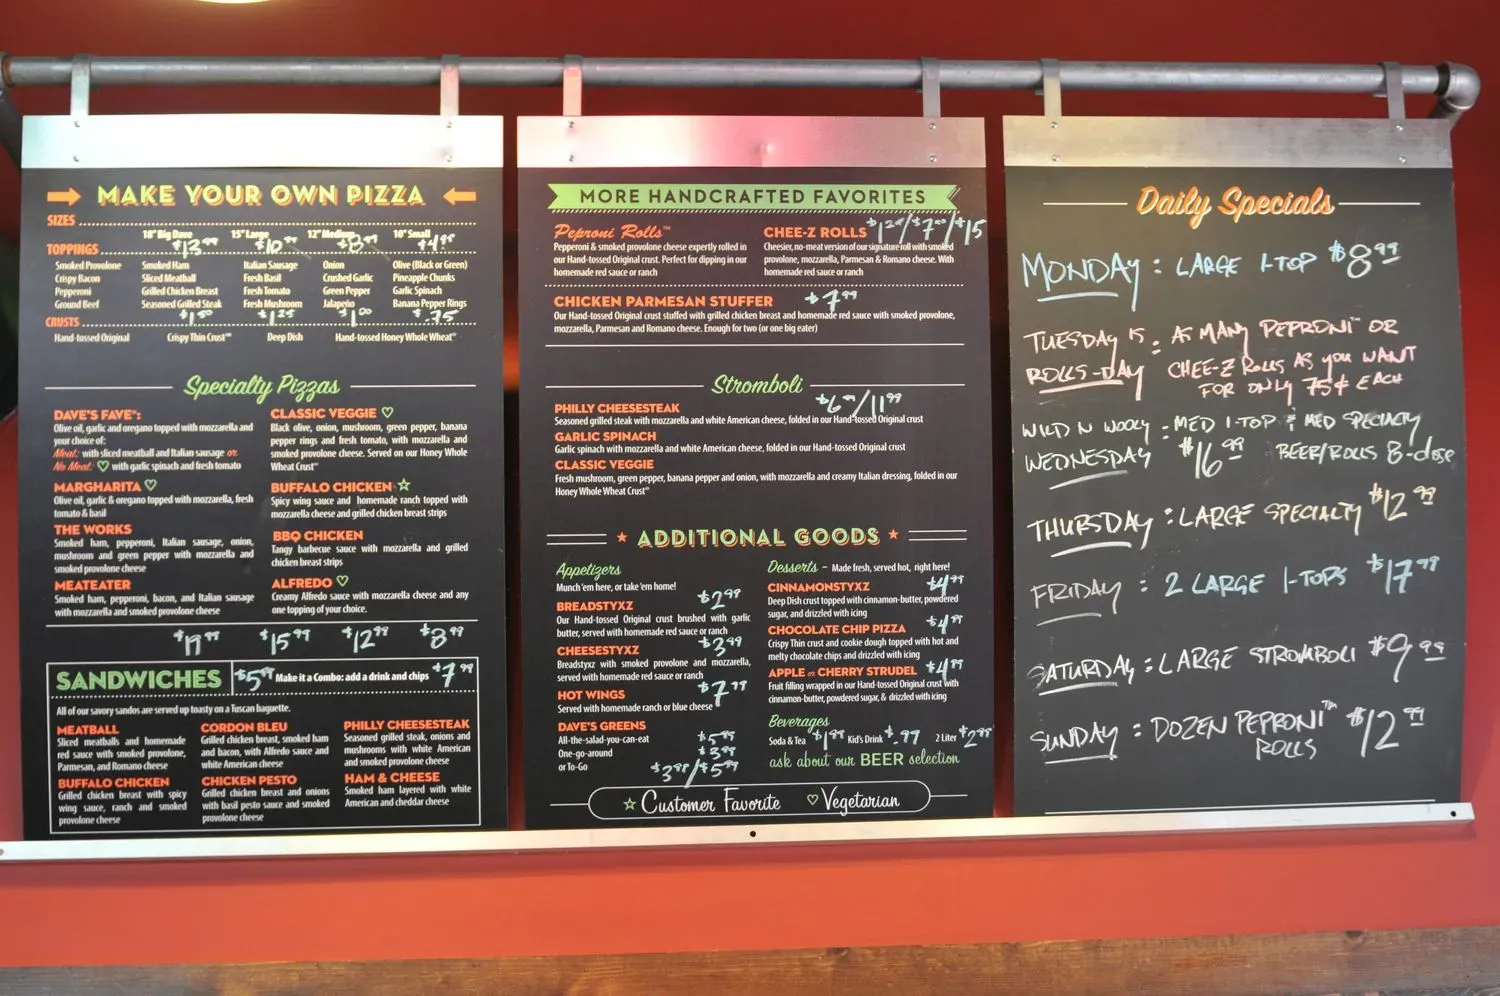 MAKE YOUR OWN PIZZA
SIZES
18" Big Dave 15" Large 12" Medium 10" Small
$13.99 $10.99 $8.99 $4.95
TOPPINGS
Smoked Provolone Smoked Ham Italian Sausage Onion Olive (Black or Green)
Crispy Bacon Sliced Meatball Fresh Basil Crushed Garlic Pineapple Chunks
Pepperoni Grilled Chicken Breast Fresh Tomato Green Pepper Garlic Spinach
Ground Beef Seasoned Grilled Steak Fresh Mushroom Jalapeño Banana Pepper Rings
$1.50 $1.25 $1.00 $.75
CRUSTS
Hand-tossed Original Crispy Thin Crust™ Deep Dish Hand-tossed Honey Whole Wheat™
Specialty Pizzas
DAVE'S FAVE™:
Olive oil, garlic and oregano topped with mozzarella and
your choice of:
Meat: with sliced meatball and Italian sausage or
No Meat: ♡ with garlic spinach and fresh tomato
MARGHARITA ♡
Olive oil, garlic & oregano topped with mozzarella, fresh
tomato & basil
THE WORKS
Smoked ham, pepperoni, Italian sausage, onion,
mushroom and green pepper with mozzarella and
smoked provolone cheese
MEATEATER
Smoked ham, pepperoni, bacon, and Italian sausage
with mozzarella and smoked provolone cheese
CLASSIC VEGGIE ♡
Black olive, onion, mushroom, green pepper, banana
pepper rings and fresh tomato, with mozzarella and
smoked provolone cheese. Served on our Honey Whole
Wheat Crust™
BUFFALO CHICKEN ☆
Spicy wing sauce and homemade ranch topped with
mozzarella cheese and grilled chicken breast strips
BBQ CHICKEN
Tangy barbecue sauce with mozzarella and grilled
chicken breast strips
ALFREDO ♡
Creamy Alfredo sauce with mozzarella cheese and any
one topping of your choice.
$19.99 $15.99 $12.99 $8.99
SANDWICHES $5.99 Make it a Combo: add a drink and chips $7.99
All of our savory sandos are served up toasty on a Tuscan baguette.
MEATBALL
Sliced meatballs and homemade
red sauce with smoked provolone,
Parmesan, and Romano cheese
BUFFALO CHICKEN
Grilled chicken breast with spicy
wing sauce, ranch and smoked
provolone cheese
CORDON BLEU
Grilled chicken breast, smoked ham
and bacon, with Alfredo sauce and
white American cheese
CHICKEN PESTO
Grilled chicken breast and onions
with basil pesto sauce and smoked
provolone cheese
PHILLY CHEESESTEAK
Seasoned grilled steak, onions and
mushrooms with white American
and smoked provolone cheese
HAM & CHEESE
Smoked ham layered with white
American and cheddar cheese
MORE HANDCRAFTED FAVORITES
Peproni Rolls™
Pepperoni & smoked provolone cheese expertly rolled in
our Hand-tossed Original crust. Perfect for dipping in our
homemade red sauce or ranch
CHEE-Z ROLLS $1.25/$7.50/$15
Cheesier, no-meat version of our signature roll with smoked
provolone, mozzarella, Parmesan & Romano cheese. With
homemade red sauce or ranch
CHICKEN PARMESAN STUFFER $7.99
Our Hand-tossed Original crust stuffed with grilled chicken breast and homemade red sauce with smoked provolone,
mozzarella, Parmesan and Romano cheese. Enough for two (or one big eater)
Stromboli
PHILLY CHEESESTEAK $6.99/11.99
Seasoned grilled steak with mozzarella and white American cheese, folded in our Hand-tossed Original crust
GARLIC SPINACH
Garlic spinach with mozzarella and white American cheese, folded in our Hand-tossed Original crust
CLASSIC VEGGIE
Fresh mushroom, green pepper, banana pepper and onion, with mozzarella and creamy Italian dressing, folded in our
Honey Whole Wheat Crust™
★ ADDITIONAL GOODS ★
Appetizers
Munch 'em here, or take 'em home!
BREADSTYXZ $2.99
Our Hand-tossed Original crust brushed with garlic
butter, served with homemade red sauce or ranch
CHEESESTYXZ $3.99
Breadstyxz with smoked provolone and mozzarella,
served with homemade red sauce or ranch
HOT WINGS $7.99
Served with homemade ranch or blue cheese
DAVE'S GREENS
All-the-salad-you-can-eat $5.99
One-go-around $3.99
or To-Go $3.99/$5.99
Desserts – Made fresh, served hot, right here!
CINNAMONSTYXZ $4.99
Deep Dish crust topped with cinnamon-butter, powdered
sugar, and drizzled with icing
CHOCOLATE CHIP PIZZA $4.99
Crispy Thin crust and cookie dough topped with hot and
melty chocolate chips and drizzled with icing
APPLE or CHERRY STRUDEL $4.99
Fruit filling wrapped in our Hand-tossed Original crust with
cinnamon-butter, powdered sugar, & drizzled with icing
Beverages
Soda & Tea $1.99 Kid's Drink $.99 2 Liter $2.99
ask about our BEER selection
☆ Customer Favorite ♡ Vegetarian
Daily Specials
MONDAY : LARGE 1-TOP $8.99
TUESDAY IS : AS MANY PEPRONI™ OR
ROLLS-DAY CHEE-Z ROLLS AS YOU WANT
FOR ONLY 75¢ EACH
WILD N WOOLY : MED 1-TOP & MED SPECIALTY
WEDNESDAY $16.99 BEER/ROLLS 8-close
THURSDAY : LARGE SPECIALTY $12.99
FRIDAY : 2 LARGE 1-TOPS $17.99
SATURDAY : LARGE STROMBOLI $9.99
SUNDAY : DOZEN PEPRONI™ $12.99
ROLLS